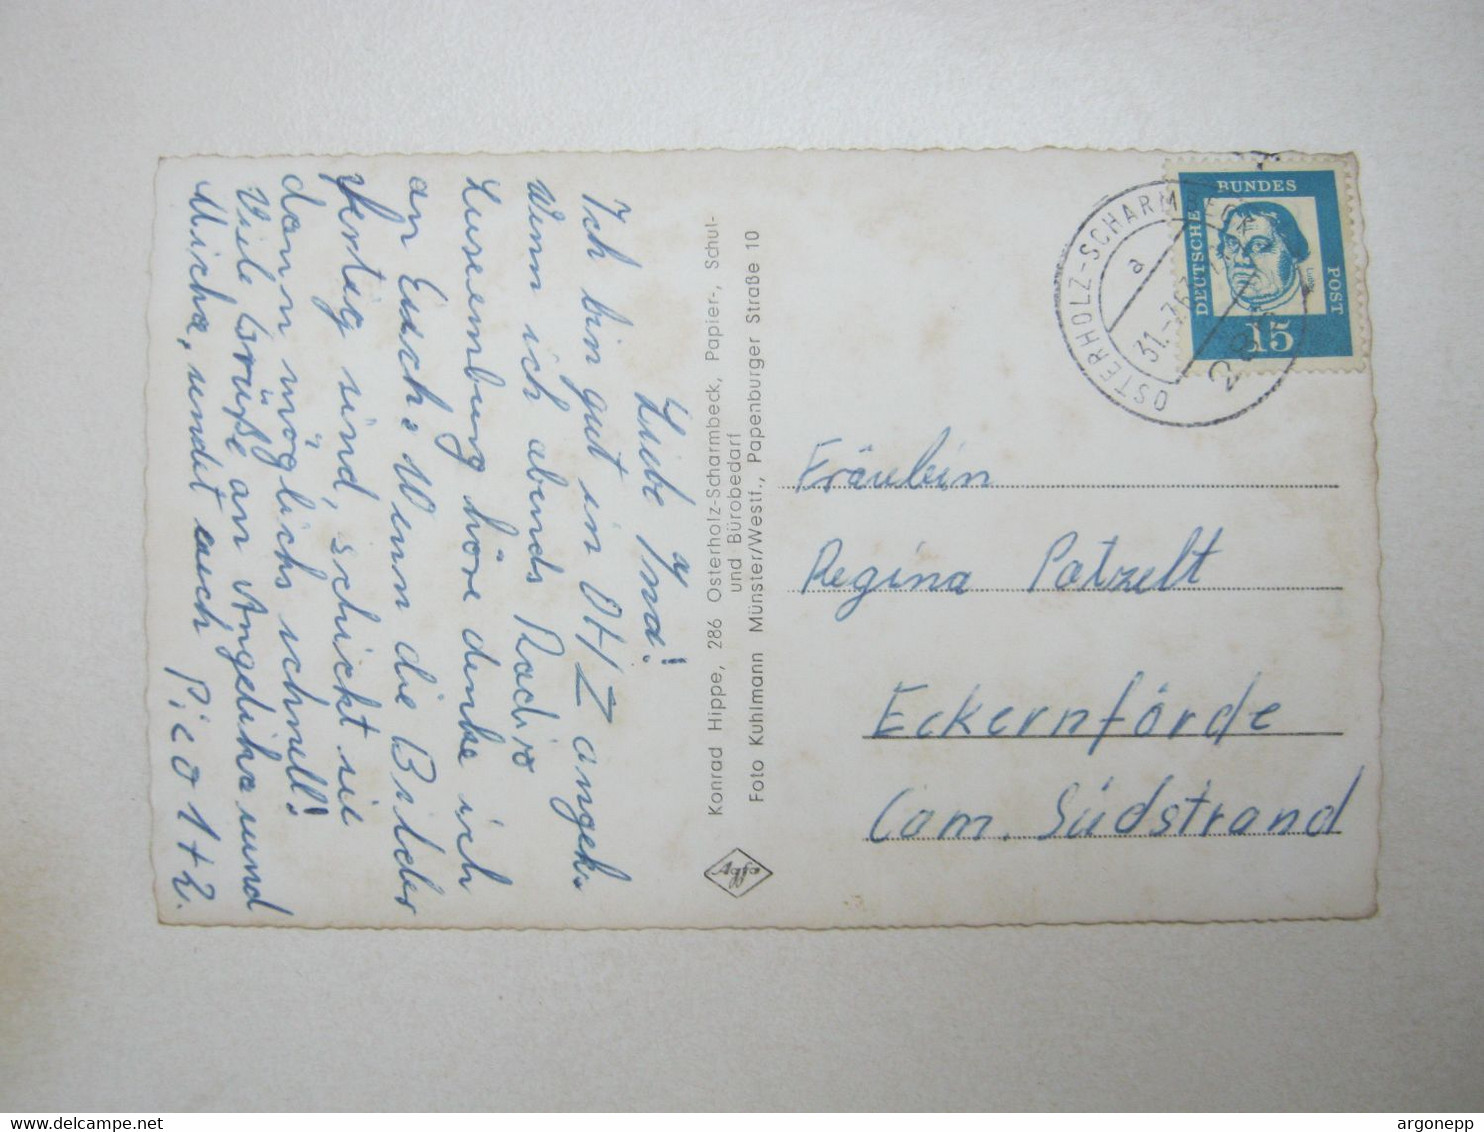 Liebe Ina!
Ich bin gut in OHZ angek.
Wenn ich abends Radio
Luxemburg höre denke ich
an Euch. Wenn die Bilder
fertig sind, schickt sie
dann möglichs schnell!
Viele Grüße an Angelika und
Micha, sendet euch Pico 1+2.
Konrad Hippe, 286 Osterholz-Scharmbeck, Papier-, Schul-
und Bürobedarf
Foto Kuhlmann Münster/Westf., Papenburger Straße 10
Agfa
DEUTSCHE BUNDES POST
15
OSTERHOLZ-SCHARMBECK
a
31.-7.63
286
Fräulein
Regina Patzelt
Eckernförde
Cam. Südstrand
www.delcampe.net
argonepp